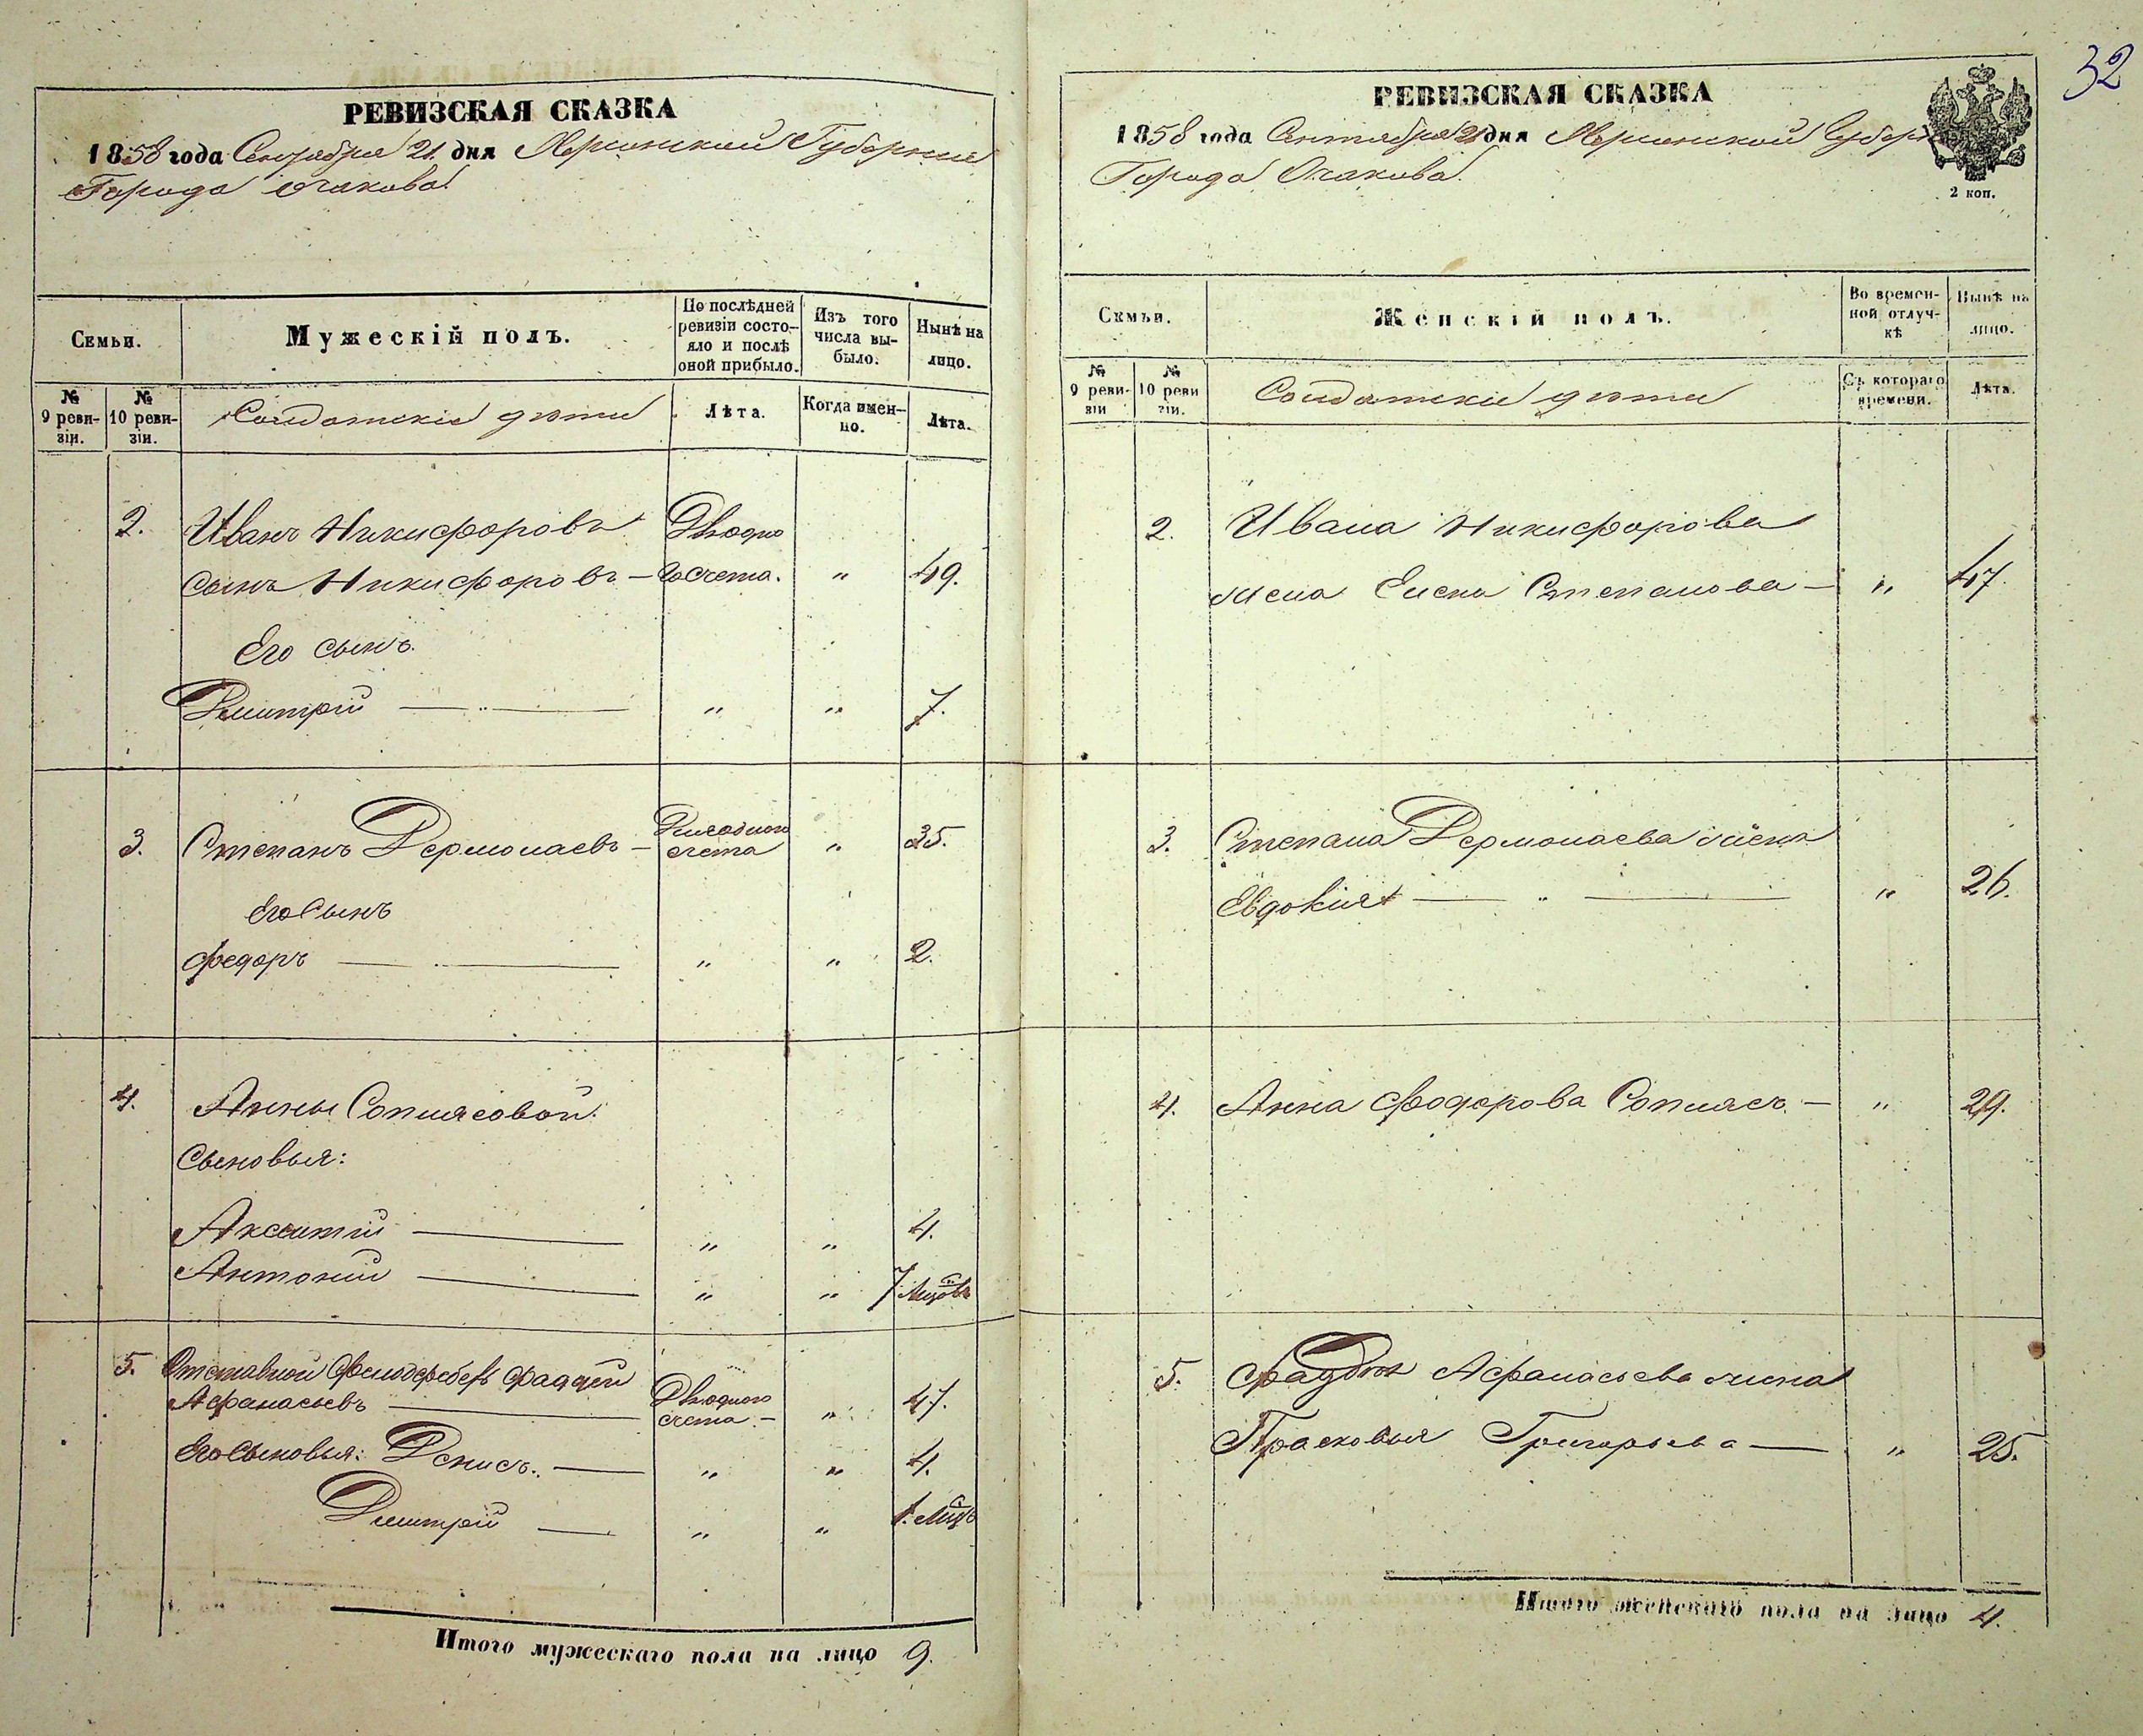 32
РЕВИЗСКАЯ СКАЗКА
1858 года Сентября 21 дня Херсонской Губернии
Города Очакова
Семьи.
Мужескій полъ.
По послѣдней ревизіи состояло и послѣ оной прибыло.
Изъ того числа выбыло.
Нынѣ на лицо.
№ 9 ревизіи.
№ 10 ревизіи.
Солдатскіе дѣти
Лѣта.
Когда имен-но.
Лѣта.
2. Иванъ Никифоровъ
сынъ Никифоровъ — счета. " 49.
Его сынъ
Дмитрій — " — " " 7.
3. Степанъ Дермолаевъ — счета " 35.
Его Сынъ
Федоръ — " " 2.
4. Анны Сопилсовой
Сыновья:
Аксентій — " " 4.
Антоній — " " 7 Мѣсяцовъ
5. Отставной Фельдфебель Фаддей
Афанасьевъ — счета — " 47.
Его Сыновья: Денисъ. — " " 4.
Дмитрій — " " 1. Мѣсяцъ
Итого мужескаго пола на лицо 9.
РЕВИЗСКАЯ СКАЗКА
1858 года Сентября 21 дня Херсонской Губерн
Города Очакова.
2 коп.
Семьи.
Женскій полъ.
Во временной отлучкѣ
Нынѣ на лицо.
№ 9 ревизіи
№ 10 ревизіи.
Солдатскіе дѣти
Съ котораго времени.
Лѣта.
2. Ивана Никифорова
жена Елена Степанова — " 47.
3. Степана Дермолаева жена
Евдокія — " — " 26.
4. Анна Федорова — " 29.
5. Фаддея Афанасьева жена
Прасковья Григорьева — " 25.
Итого женскаго пола на лицо 4.